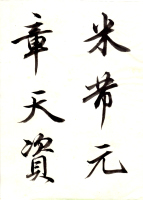 米芾元
章天資